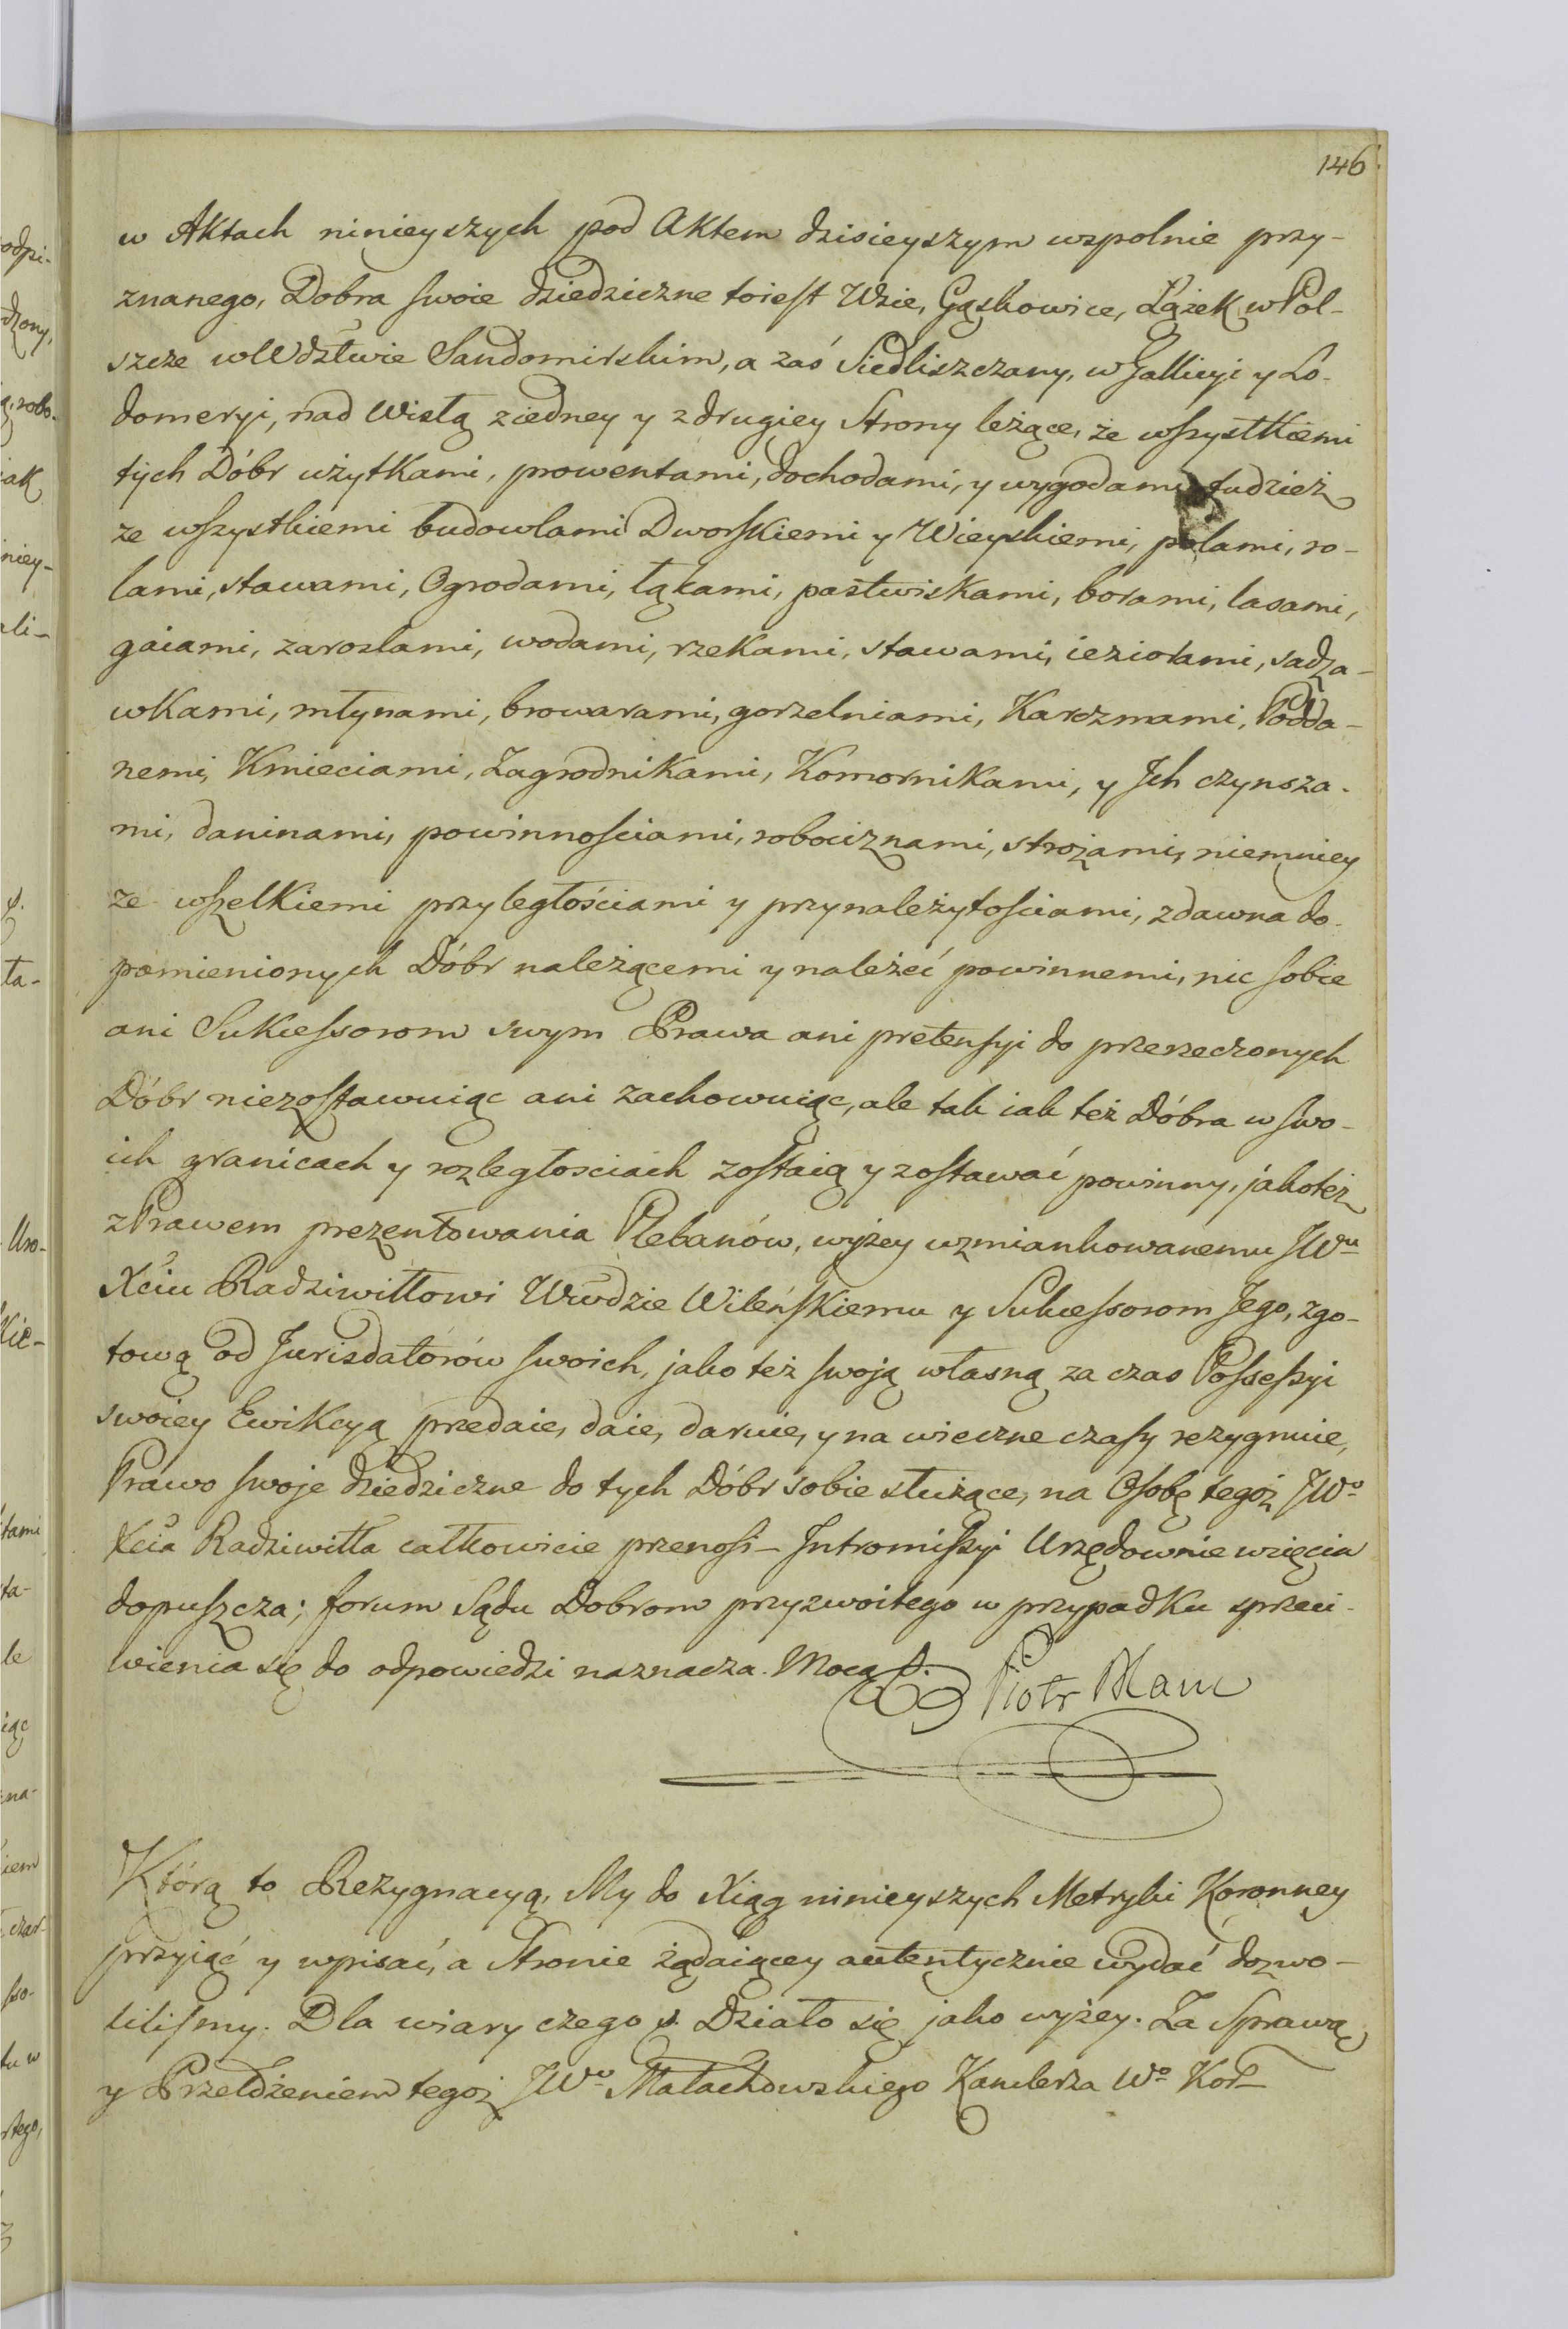 146.
w Aktach ninieyszych pod Aktem dzisieyszym wspolnie przy-
znanego, Dobra swoie dziedziczne toiest Wsie, Gąskowice, Łążek w Pol-
szcze w Wdztwie Sandomirskim, a zaś Siedliszczany, w Gallicyi y Lo-
domeryi, nad Wisłą z iedney y z drugiey Strony leżące, ze wszystkiemi
tych Dóbr użytkami, prowentami, dochodami, y wygodami tudzież
ze wszystkiemi budowlami Dworskiemi y Wieyskiemi, polami, ro-
lami, stawami, Ogrodami, łąkami, pastwiskami, borami, lasami,
gaiami, zaroslami, wodami, rzekami, stawami, ieziorami, sadza-
wkami, młynami, browarami, gorzelniami, Karczmami, Podda-
nemi, Kmieciami, Zagrodnikami, Komornikami, y Ich czynsza-
mi, daninami, powinnościami, robociznami, strożami, niemniey
ze wszelkiemi przyległościami y przynależytościami, zdawna do
pomienionych Dóbr należącemi y należeć powinnemi, nic sobie
ani Sukcessorom swym Prawa ani pretensyi do przerzeczonych
Dóbr niezostawuiąc ani zachowuiąc, ale tak iak też Dóbra w swo-
ich granicach y rozległosciach zostaią y zostawać powinny, jakoteż
z Prawem prezentowania Plebanów, wyżey wzmiankowanemu JWu
Xciu Radziwiłłowi Wwdzie Wileńskiemu y Sukcessorom Jego, z go-
tową od Jurisdatorów swoich, jako też swoją własną za czas Possessyi
swoiey Ewikcyą przedaie, daie, daruie, y na wieczne czasy rezygnuie,
Prawo swoje dziedziczne do tych Dóbr sobie służące, na Osobę tegoż JWo
Xcia Radziwiłła całkowicie przenosi – Intromissyi Urzędownie wzięcia
dopuszcza; forum Sądu Dobrom przyzwoitego w przypadku sprzeci-
wienia się do odpowiedzi naznacza. Mocą &. Piotr
Którą to Rezygnacyą, My do Xiąg ninieyszych Metryki Koronney
przyiąć y wpisać, a Stronie żądaiącey autentycznie wydać dozwo-
lilismy. Dla wiary czego &. Działo się jako wyżey. Za Sprawą
y Przełożeniem tegoż JWo Małachowskiego Kanclerza Wo Kor–